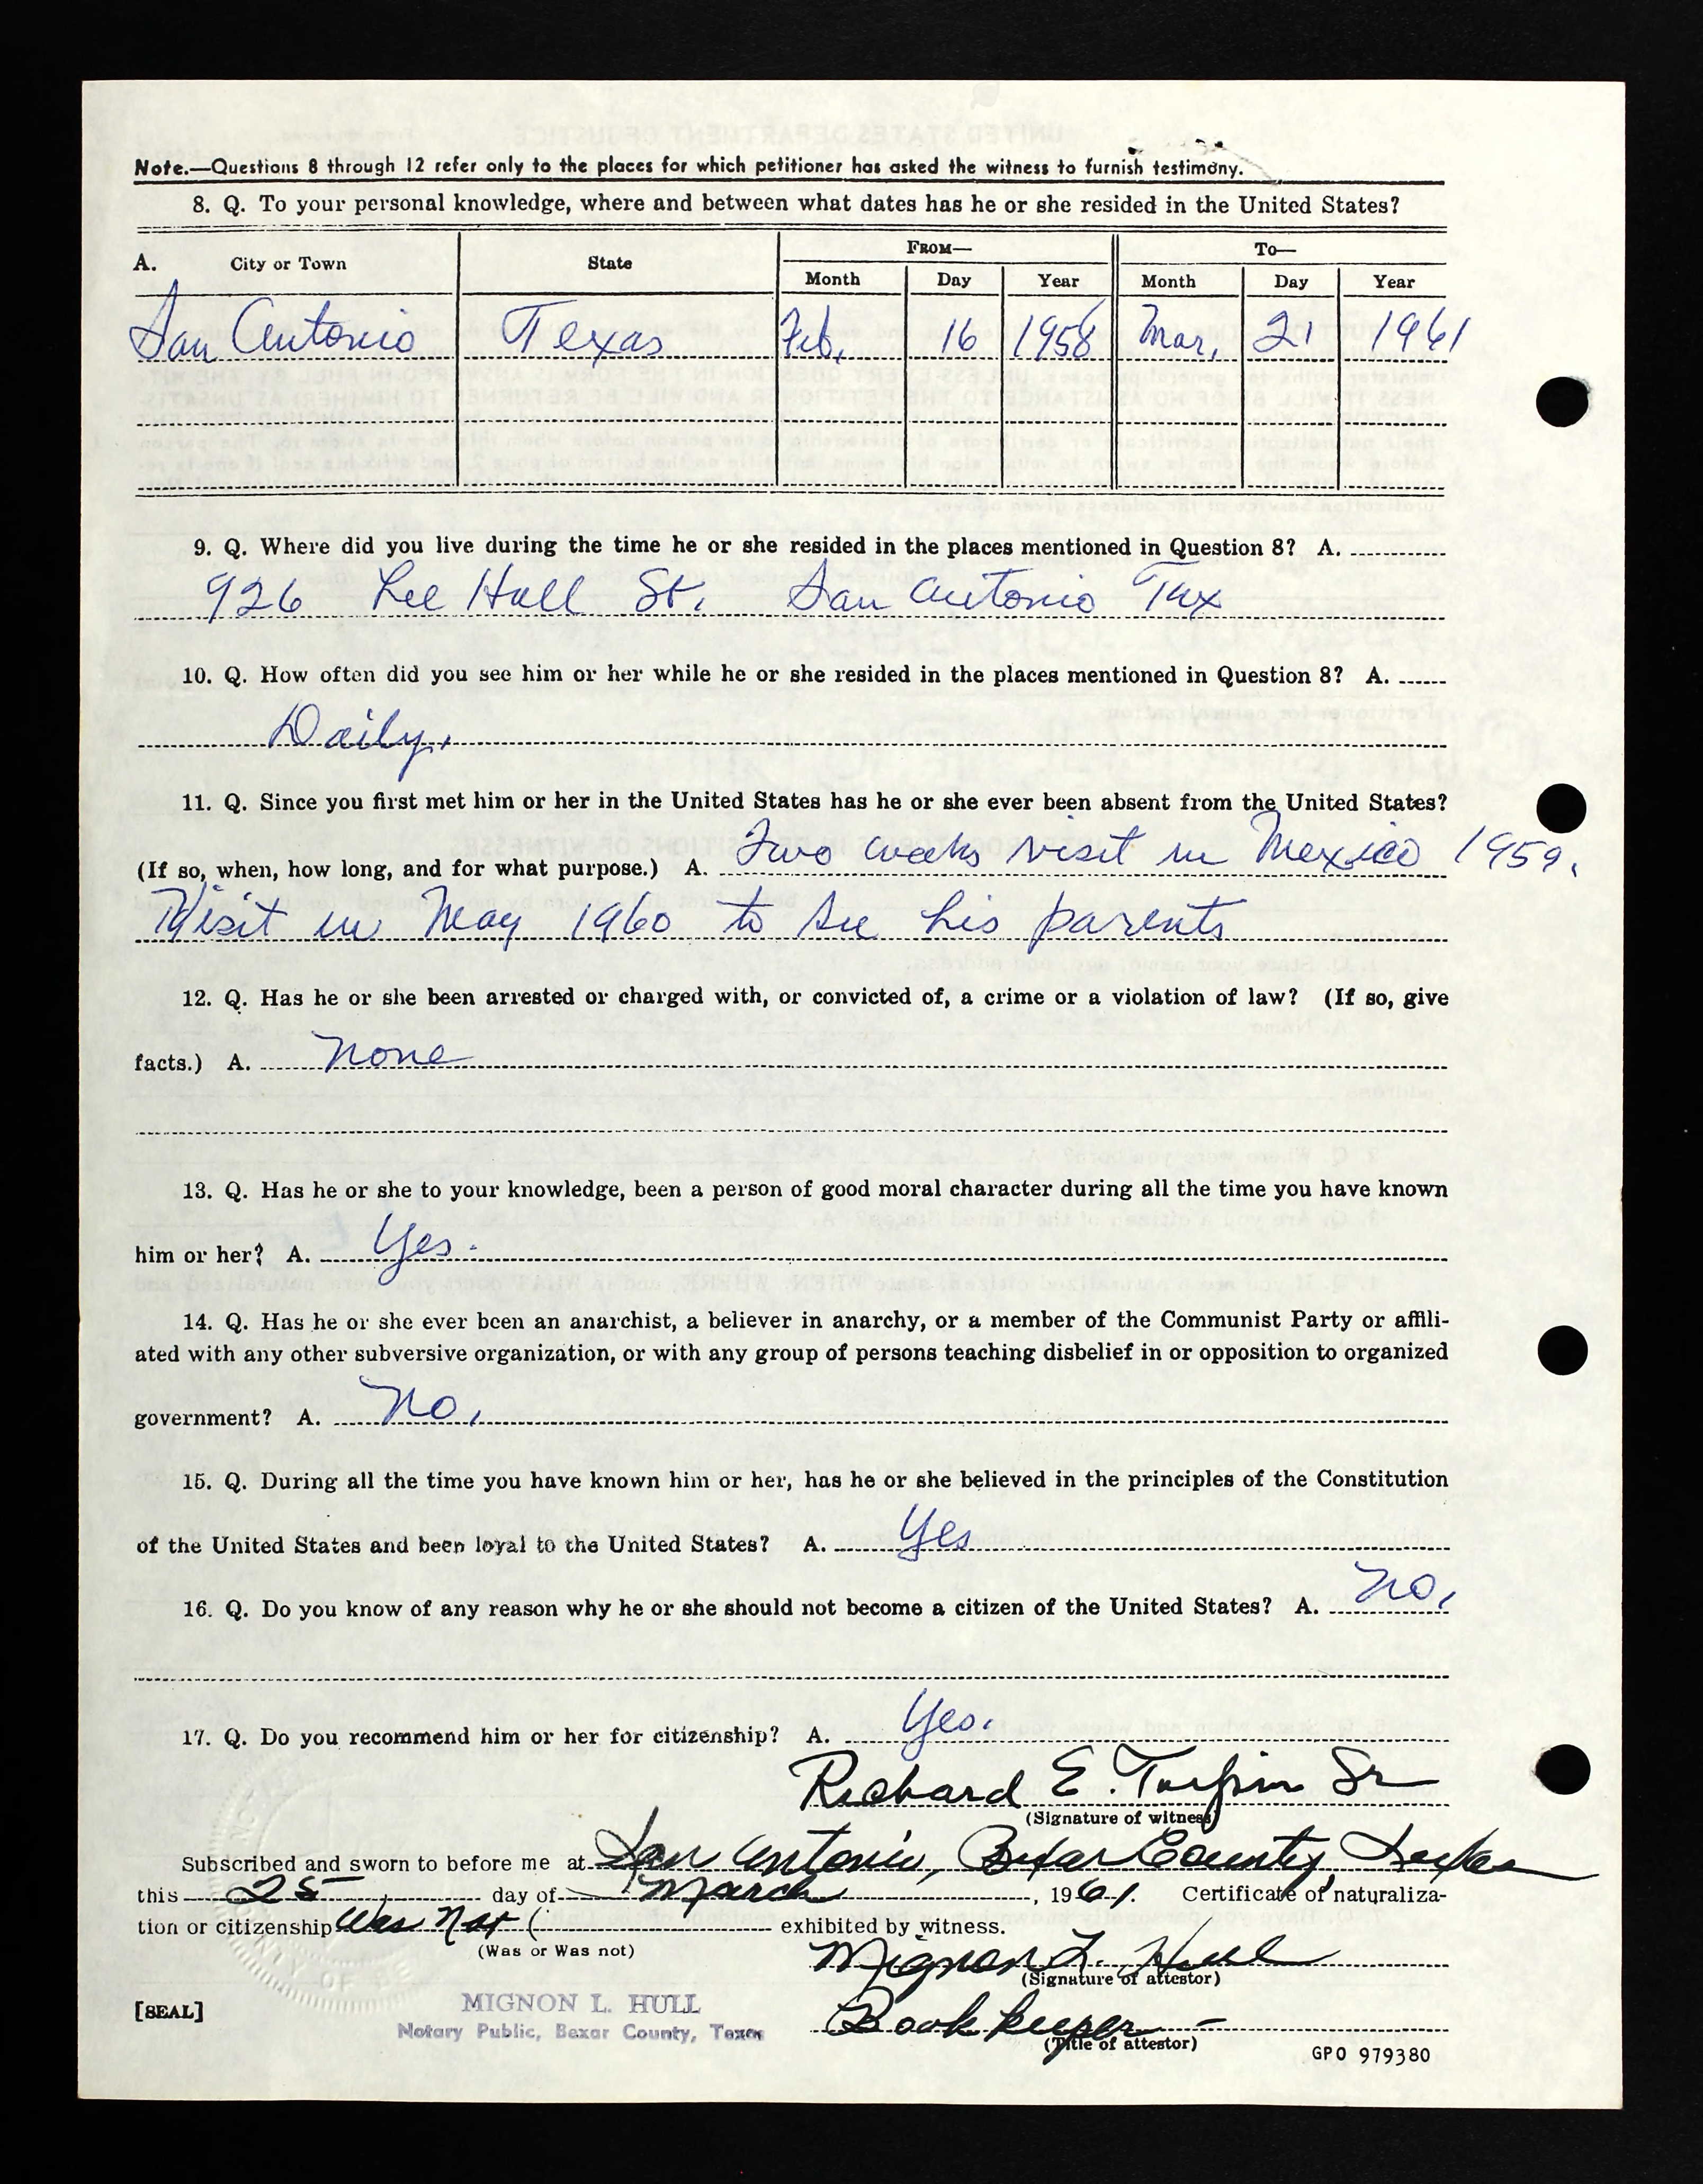 Note.—Questions 8 through 12 refer only to the places for which petitioner has asked the witness to furnish testimony.
8. Q. To your personal knowledge, where and between what dates has he or she resided in the United States?
A. City or Town State FROM— To—
Month Day Year Month Day Year
San Antonio Texas Feb. 16 1958 Mar. 21 1961
9. Q. Where did you live during the time he or she resided in the places mentioned in Question 8? A.
926 Lee Hall St. San Antonio Tex
10. Q. How often did you see him or her while he or she resided in the places mentioned in Question 8? A.
Daily.
11. Q. Since you first met him or her in the United States has he or she ever been absent from the United States?
(If so, when, how long, and for what purpose.) A. Two weeks visit in Mexico 1959.
Visit in May 1960 to see his parents
12. Q. Has he or she been arrested or charged with, or convicted of, a crime or a violation of law? (If so, give
facts.) A. None
13. Q. Has he or she to your knowledge, been a person of good moral character during all the time you have known
him or her? A. Yes.
14. Q. Has he or she ever been an anarchist, a believer in anarchy, or a member of the Communist Party or affili-
ated with any other subversive organization, or with any group of persons teaching disbelief in or opposition to organized
government? A. No.
15. Q. During all the time you have known him or her, has he or she believed in the principles of the Constitution
of the United States and been loyal to the United States? A. Yes
16. Q. Do you know of any reason why he or she should not become a citizen of the United States? A. No.
17. Q. Do you recommend him or her for citizenship? A. Yes.
Richard E. Turpin Sr
(Signature of witness)
Subscribed and sworn to before me at San Antonio, Bexar County, Texas
this 25 day of March, 1961. Certificate of naturaliza-
tion or citizenship Was Not ( exhibited by witness.
(Was or Was not)
Mignon L. Hull
(Signature of attestor)
[SEAL]
MIGNON L. HULL
Notary Public, Bexar County, Texas
Book keeper -
(Title of attestor)
GPO 979380